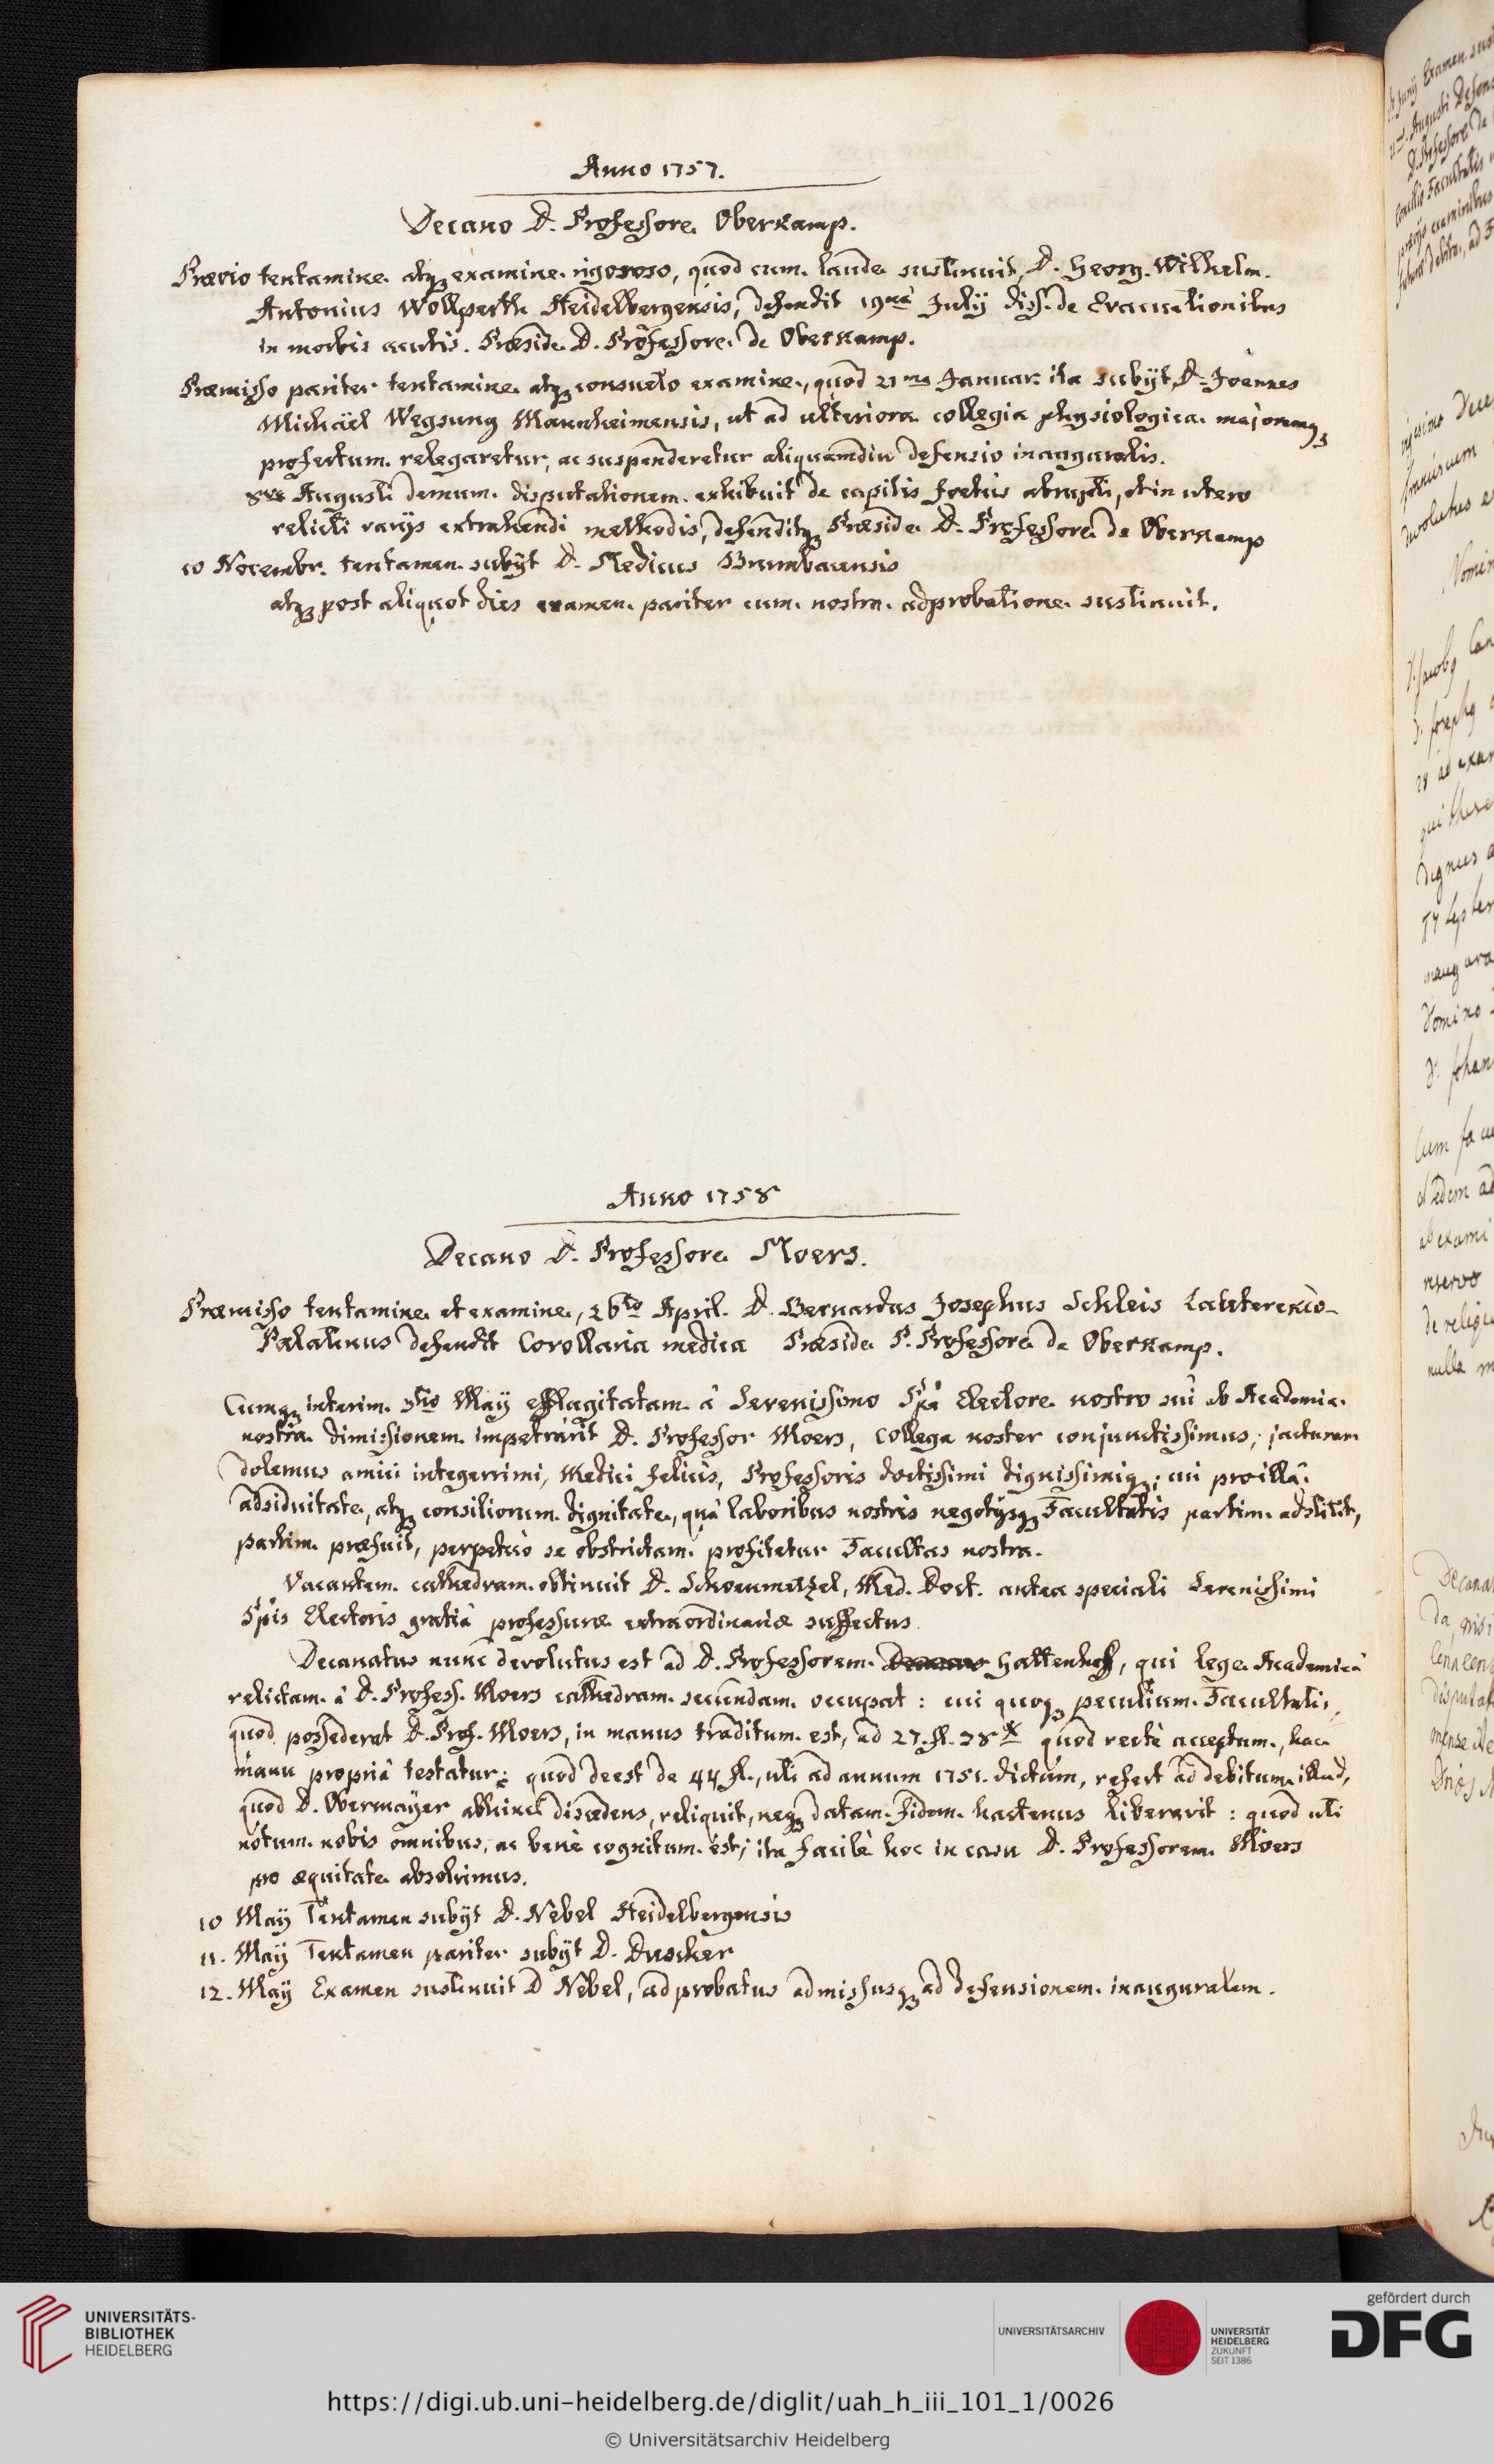 Anno 1757.
Decano D. Professore Oberkamp.
Prævio tentamine atq; examine rigoroso, quod cum laude sustinuit, D. Georg. Wilhelm.
Antonius Wollperth Heidelbergensis, defendit 19nâ July diss. de Evacuationibus
in morbis acutis. Præside D. Professore de Oberkamp.
Præmisso pariter tentamine atq; consueto examine, quod 21ma Januar. ita subyt, D. Joannes
Michaël Wegsung Mannheimensis, ut ad ulteriora collegia physiologica majoremq;
profectum relegaretur, ac suspenderetur aliquamdiu defensio inauguralis.
8va Augusti demum disputationem exhibuit de capitis foetûs abrupti, et in utero
relicti varijs extrahendi methodis, defenditq; Præside D. Professore de Oberkamp
10 Novembr. tentamen subyt D. Medicus
atq; post aliquot dies examen pariter cum nostra adprobatione sustinuit.
Anno 1758
Decano D. Professore Moers.
Præmisso tentamine et examine, 26to April. D. Bernardus Josephus Schleis
Palatinus defendit Corollaria medica Præside P. Professore de Oberkamp.
Cumq; interim 3tio May efflagitatam â Serenissimo Spô Electore nostro suî ab Academia
nostra dimissionem impetrârit D. Professor Moers, Collega noster conjunctissimus; jacturam
dolemus amici integerrimi, Medici felicis, Professoris doctissimi dignissimiq;: cui pro illâ
adsiduitate, atq; consiliorum dignitate, quâ laboribus nostris negotijsq; Facultatis partim adstitit,
partim præfuit, perpetuò se obstrictam profitetur Facultas nostra.
Vacantem cathedram obtinuit D. Schoenmetzel, Med. Doct. antea speciali Serenissimi
Spis Electoris gratiâ professuræ extraordinariæ suffectus.
Decanatus nunc devolutus est ad D. Professorem Gattenhoff, qui lege Academicâ
relictam â D. Profess. Moers cathedram secundam occupat: cui quoq; peculium Facultatis,
quod possederat D. Prof. Moers, in manus traditum est, ad 27. fl. 38 x quod rectè acceptum, hac
manu propriâ testatur: quod deest de 44 fl., uti ad annum 1751. dictum, refert ad debitum illud,
quod D. Obermayer abhinc discedens, reliquit, neq; datam fidem hactenus liberavit: quod uti
notum nobis omnibus, ac benè cognitum est; ita facilè hoc in casu D. Professorem Moers
pro æquitate absolvimus.
10 May Tentamen subyt D. Nebel Heidelbergensis
11. May Tentamen pariter subyt D. Duscker
12. May Examen sustinuit D Nebel, adprobatus admissusq; ad defensionem inauguralem.
UNIVERSITÄTS-
BIBLIOTHEK
HEIDELBERG
UNIVERSITÄTSARCHIV
UNIVERSITÄT
HEIDELBERG
ZUKUNFT
SEIT 1386
gefördert durch
DFG
https://digi.ub.uni-heidelberg.de/diglit/uah_h_iii_101_1/0026
© Universitätsarchiv Heidelberg